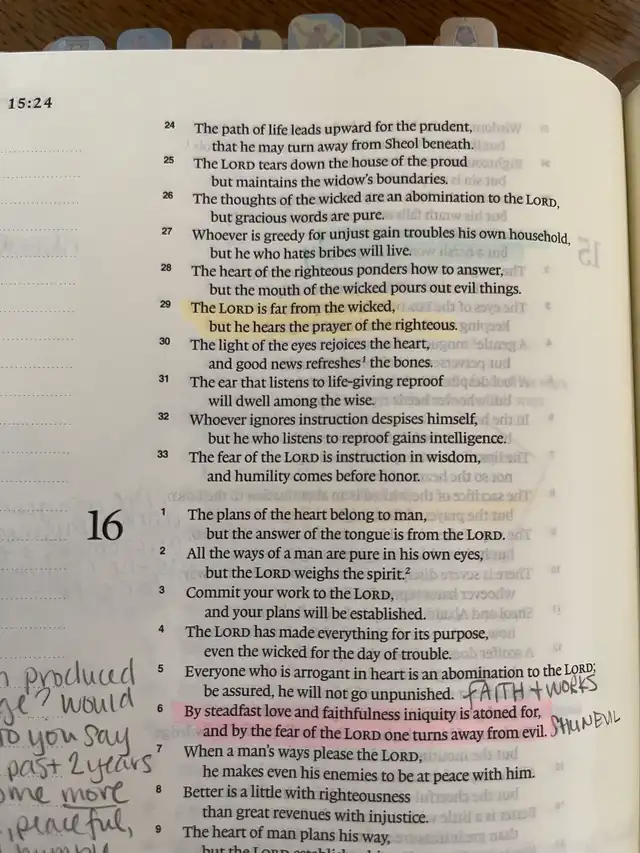 15:24
24 The path of life leads upward for the prudent,
that he may turn away from Sheol beneath.
25 The LORD tears down the house of the proud
but maintains the widow's boundaries.
26 The thoughts of the wicked are an abomination to the LORD,
but gracious words are pure.
27 Whoever is greedy for unjust gain troubles his own household,
but he who hates bribes will live.
28 The heart of the righteous ponders how to answer,
but the mouth of the wicked pours out evil things.
29 The LORD is far from the wicked,
but he hears the prayer of the righteous.
30 The light of the eyes rejoices the heart,
and good news refreshes¹ the bones.
31 The ear that listens to life-giving reproof
will dwell among the wise.
32 Whoever ignores instruction despises himself,
but he who listens to reproof gains intelligence.
33 The fear of the LORD is instruction in wisdom,
and humility comes before honor.
16
1 The plans of the heart belong to man,
but the answer of the tongue is from the LORD.
2 All the ways of a man are pure in his own eyes,
but the LORD weighs the spirit.²
3 Commit your work to the LORD,
and your plans will be established.
4 The LORD has made everything for its purpose,
even the wicked for the day of trouble.
5 Everyone who is arrogant in heart is an abomination to the LORD;
be assured, he will not go unpunished. FAITH + WORKS
6 By steadfast love and faithfulness iniquity is atoned for,
and by the fear of the LORD one turns away from evil. SHUN EVIL
7 When a man's ways please the LORD,
he makes even his enemies to be at peace with him.
8 Better is a little with righteousness
than great revenues with injustice.
9 The heart of man plans his way,
but the LORD
produced
? would
you say
past 2 years
more
, peaceful,